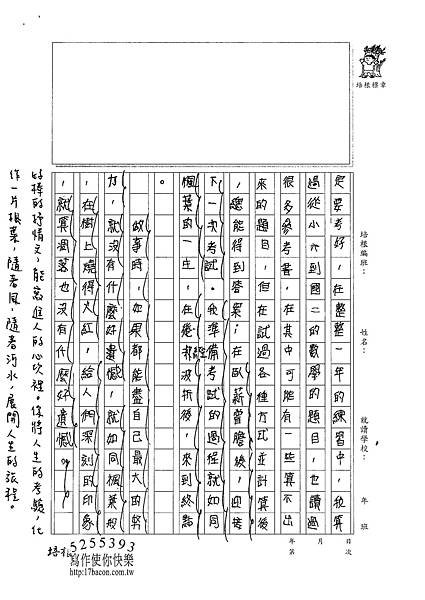 培根標章
培根編班：
姓名：
就讀學校：
年　班
年　月　日
第　次
定要考好，在整整一年的練習中，我算
過從小六到國二的數學的題目，也讀過
很多參考書，在其中可能有一些算不出
來的題目，但在試過各種方式並計算後
，總能得到答案；在臥薪嘗膽後，迎接
下一次考試。我準備考試的過程就如同
楓葉的一生，在幾經波折後，來到終點
。
做事時，如果都能盡自己最大的努
力，就沒有什麼好遺憾，就如同楓葉般
，在樹上燒得火紅，給人們深刻的印象
，就算凋落也沒有什麼好遺憾。
好棒的抒情文，能寫進人的心坎裡。你將人生的考驗，化
作一片楓葉，隨著風，隨著河水，展開人生的旅程。
培根
5255393
寫作使你快樂
http://17bacon.com.tw/